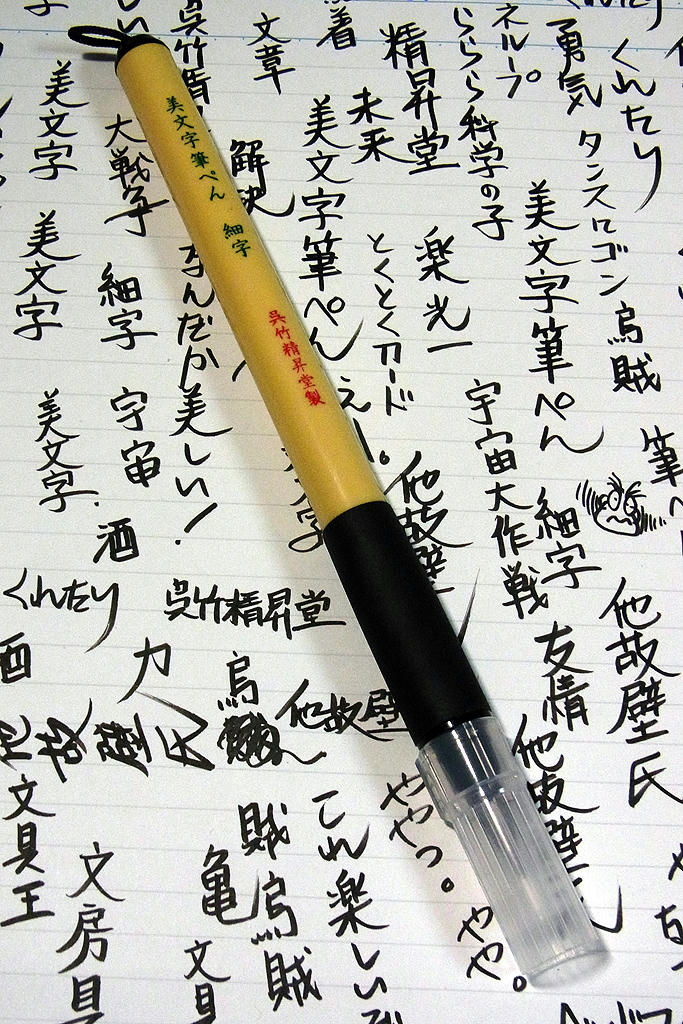 くれたり
勇気
タンスにゴン
烏賊
筆ペ
他故壁氏
ネループ
らららら科学の子
美文字筆ぺん
細字
友情
精昇堂
楽光一
宇宙大作戦
着
未来
とくとくカード
えー。
他故壁
ややっ。
やや。
文章
美文字筆ぺん
これ楽しいぞ
呉竹精
解決
なんだか美しい!
呉竹精昇堂
烏
他故壁
賊烏賊
大戦争
細字
宇宙
酒
力
亀
文具
美文字
美文字
美文字
くれたり
酒
他故壁氏
文具王
文房具
美文字筆ぺん 細字
呉竹精昇堂製